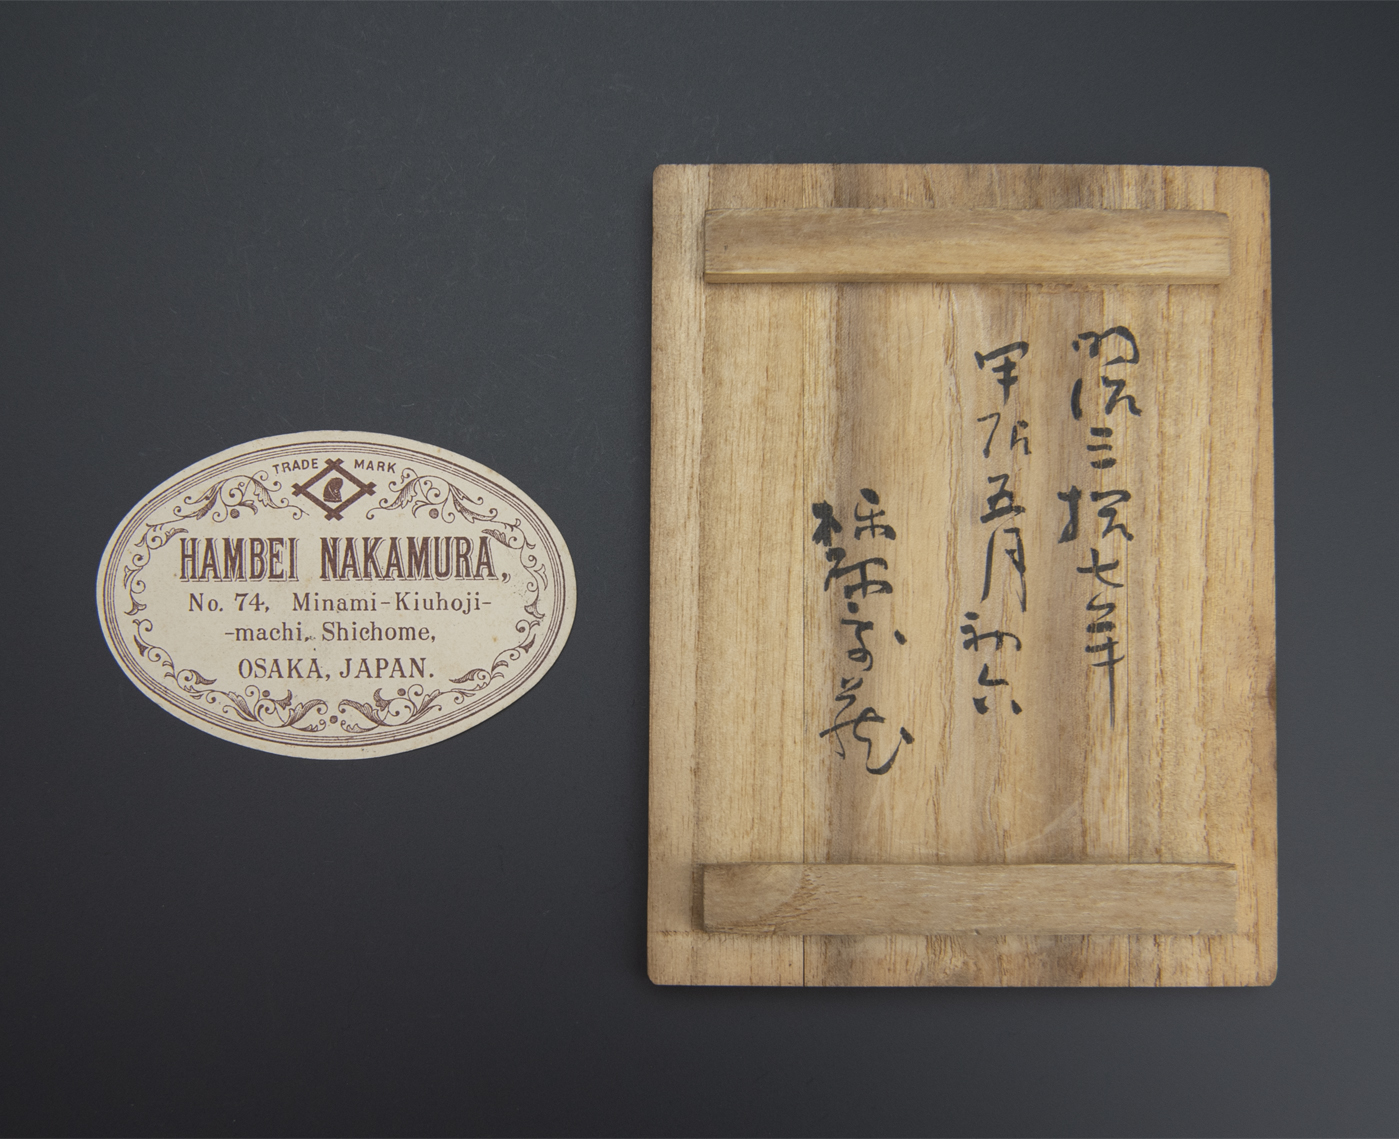 TRADE MARK
HAMBEI NAKAMURA,
No. 74, Minami-Kiuhoji-
-machi, Shichome,
OSAKA, JAPAN.
明治三拾七年
甲辰五月初六